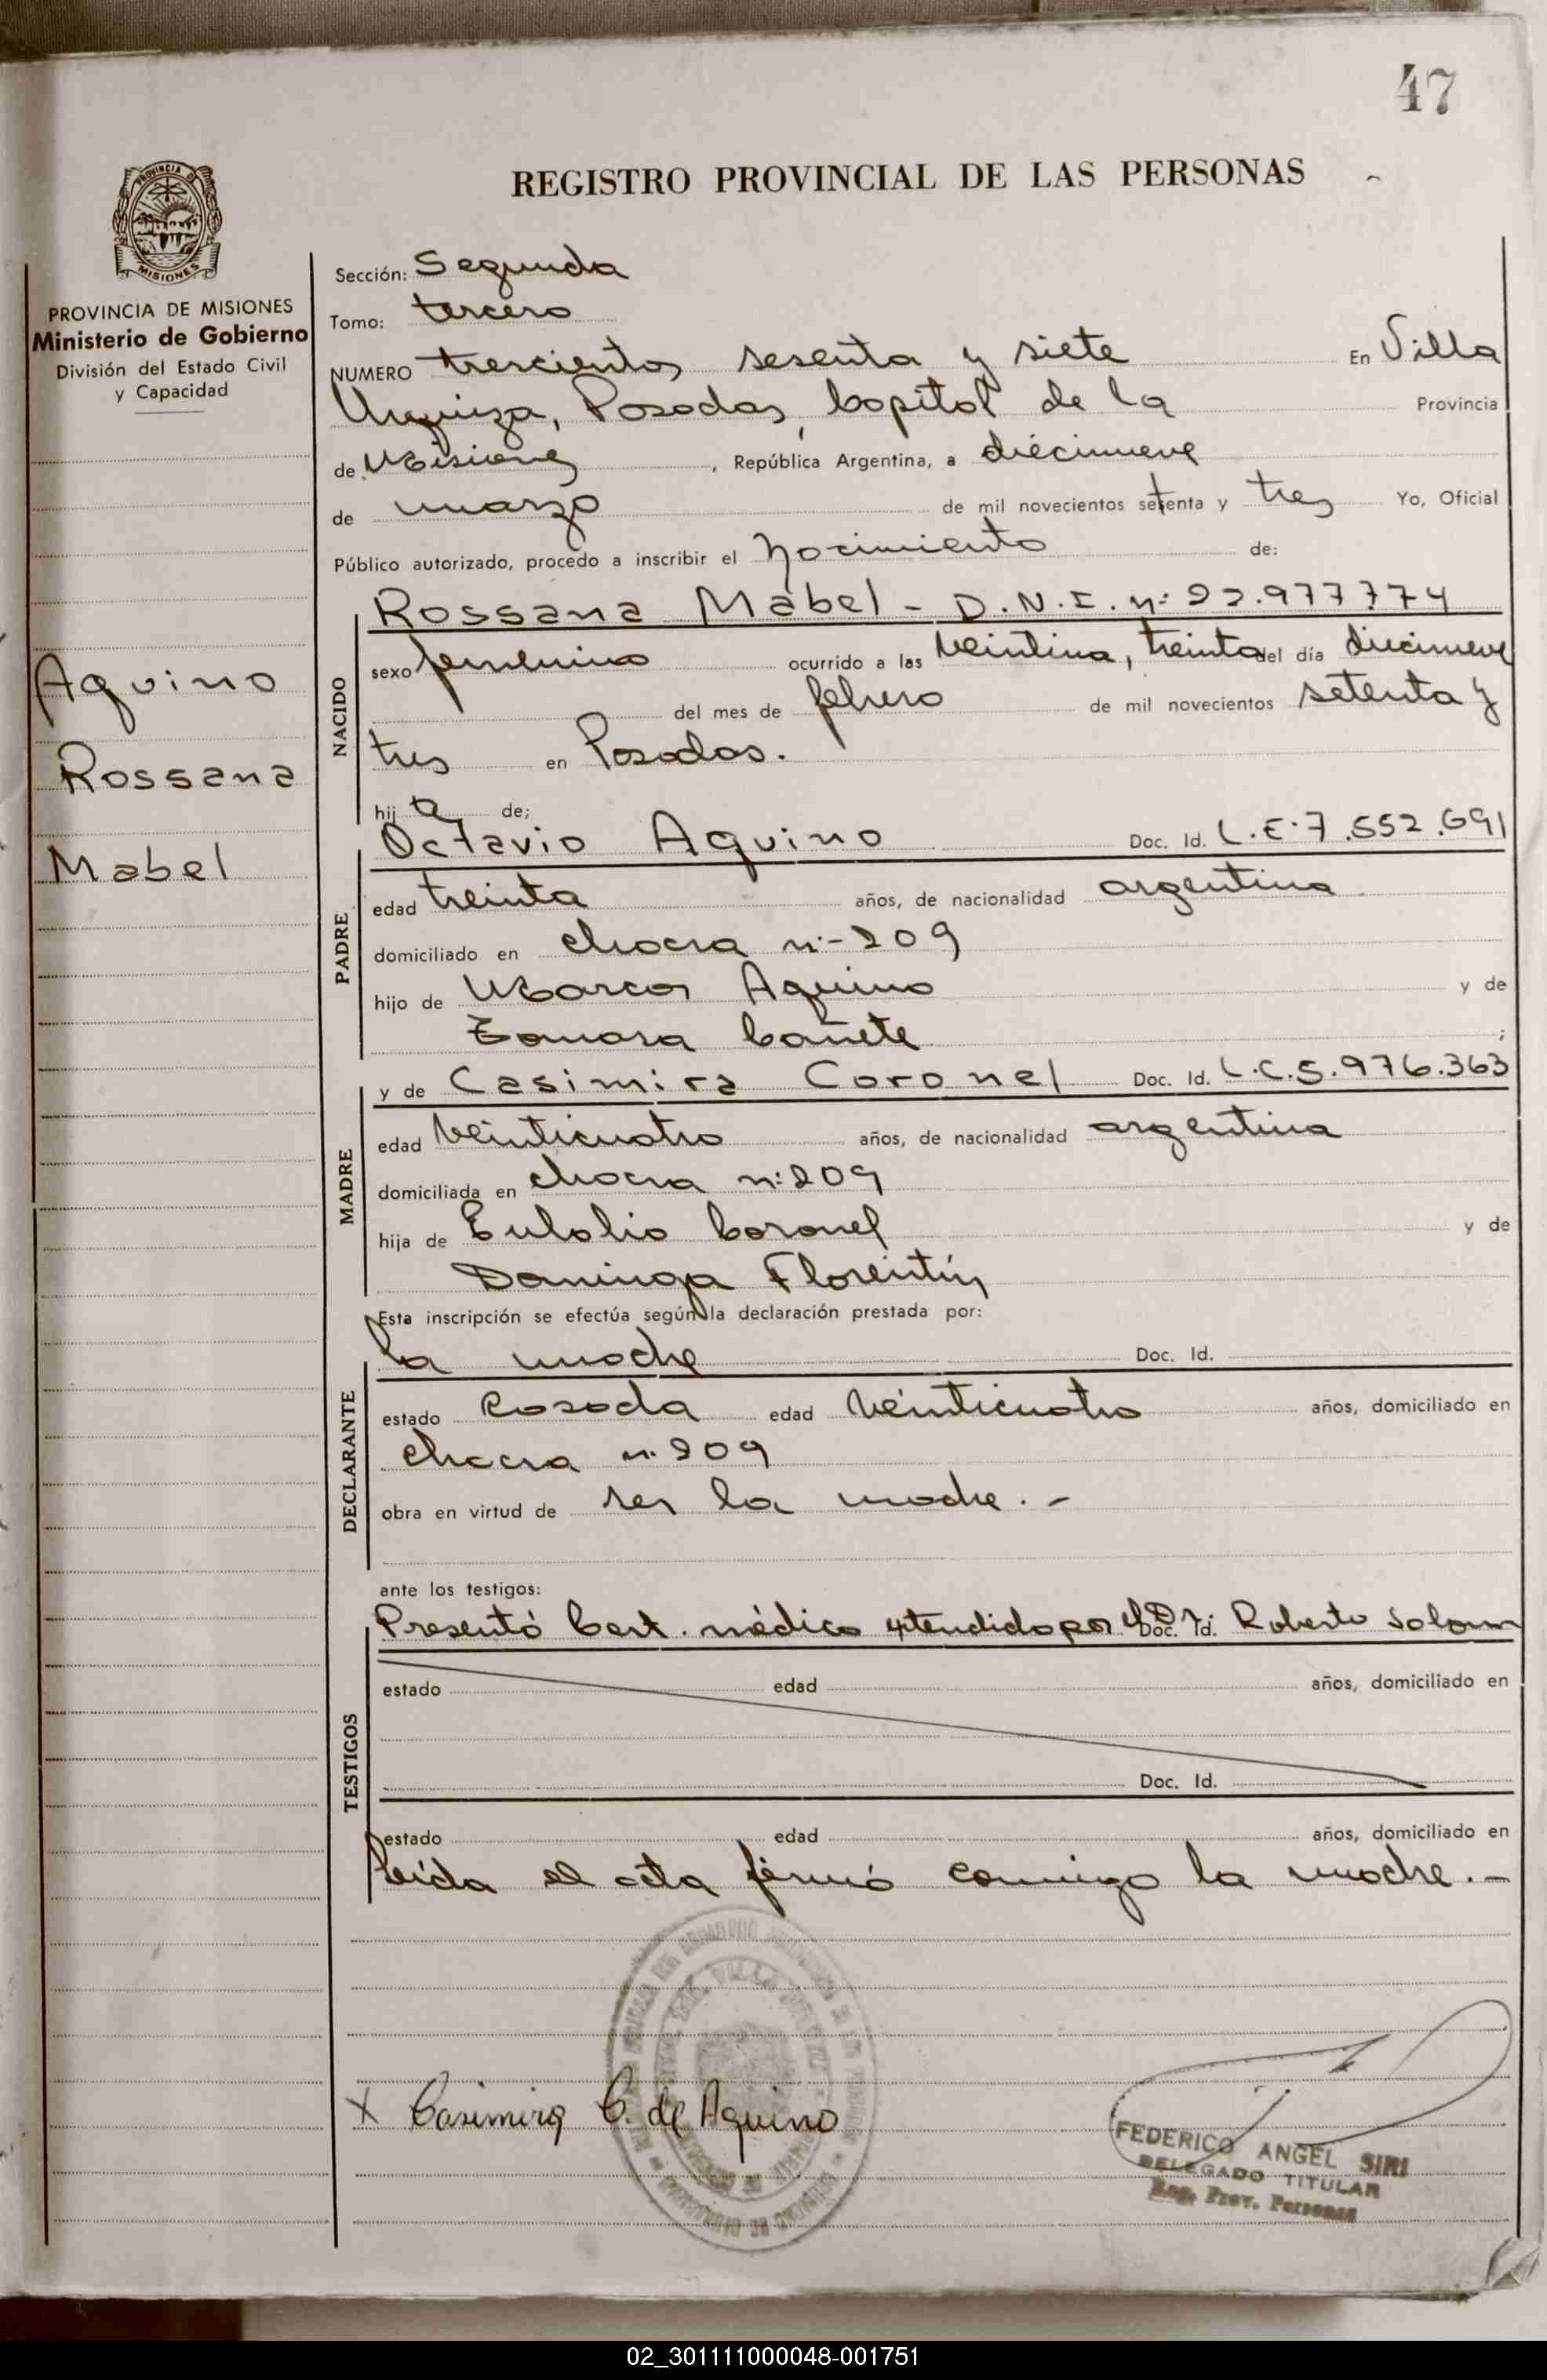 47
REGISTRO PROVINCIAL DE LAS PERSONAS
PROVINCIA DE MISIONES
Ministerio de Gobierno
División del Estado Civil
y Capacidad
Aquino
Rossana
Mabel
Sección: Segunda
Tomo: tercero
NUMERO trescientos sesenta y siete En Villa
Urquiza, Posadas, Capital de la Provincia
de Misiones, República Argentina, a diecinueve
de marzo de mil novecientos setenta y tres Yo, Oficial
Público autorizado, procedo a inscribir el Nacimiento de:
NACIDO
Rossana Mabel - D.N.I. nº 22.977774
sexo femenino ocurrido a las veintiuna, treinta del día diecinueve
del mes de febrero de mil novecientos setenta y
tres en Posadas.
hija de;
PADRE
Octavio Aquino Doc. Id. L.E. 7.552.691
edad treinta años, de nacionalidad argentina
domiciliado en chacra nº 209
hijo de Marcos Aquino y de
Cañete ;
MADRE
y de Casimira Coronel Doc. Id. L.C. 5.976.363
edad veinticuatro años, de nacionalidad argentina
domiciliada en chacra nº 209
hija de Eulalio Coronel y de
Dominga Florentín
Esta inscripción se efectúa según la declaración prestada por:
DECLARANTE
la madre Doc. Id.
estado casada edad veinticuatro años, domiciliado en
chacra nº 209
obra en virtud de ser la madre. -
ante los testigos:
TESTIGOS
Presentó Cert. médico extendido por el Dr. Doc. Id. Roberto
estado edad años, domiciliado en
Doc. Id.
estado edad años, domiciliado en
leída el acta firmó conmigo la madre. -
x Casimira C. de Aquino
FEDERICO ANGEL SIRI
DELEGADO TITULAR
Reg. Prov. Personas
02_301111000048-001751